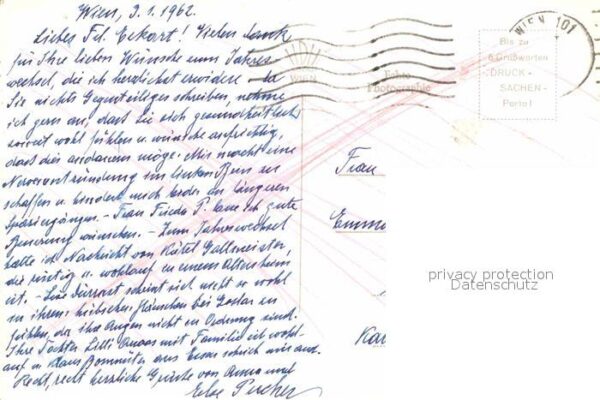 Wien, 3.1.1962.
Liebes Frl. Eckart! Vielen Dank
für Ihre lieben Wünsche zum Jahres
wechsel, die ich herzlichst erwidere. Da
Sie nichts Gegenteiliges schreiben, nehme
ich gern an, dass Sie sich gesundheitlich
soweit wohl fühlen u. wünsche aufrichtig,
dass dies andauern möge. Mir macht eine
Nervenentzündung im linken Bein zu
schaffen u. hindert mich leider an längeren
Spaziergängen. - Frau Frieda P. lasse ich gute
Besserung wünschen. - Zum Jahreswechsel
hatte ich Nachricht von Gallmeister,
die rüstig u. wohlauf in einem Altersheim
ist. - scheint sich nicht so wohl
in ihrem hübschen Häuschen bei Goslar zu
fühlen, da ihre Augen nicht in Ordnung sind.
Ihre Tochter Lilli mit Familie ist wohl
auf u. Klaus aus schrieb mir auch.
Recht, recht herzliche Grüße von Anna und
Pucher
WIEN 101
WIEN
Echte
Photographie
Bis zu
5 Grußworten
DRUCK-
SACHEN-
Porto!
Frau
Emm
Kar
privacy protection
Datenschutz